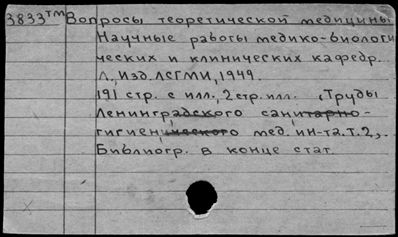 3833тм Вопросы теоретической медицины
Научные работы медико-биологи
ческих и клинических кафедр.
Л., Изд. ЛСГМИ, 1949.
191 стр. с илл., 2 стр. илл. (Труды
Ленинградского санитарно-
гигиенического мед. ин-та. т. 2).
Библиогр. в конце стат.